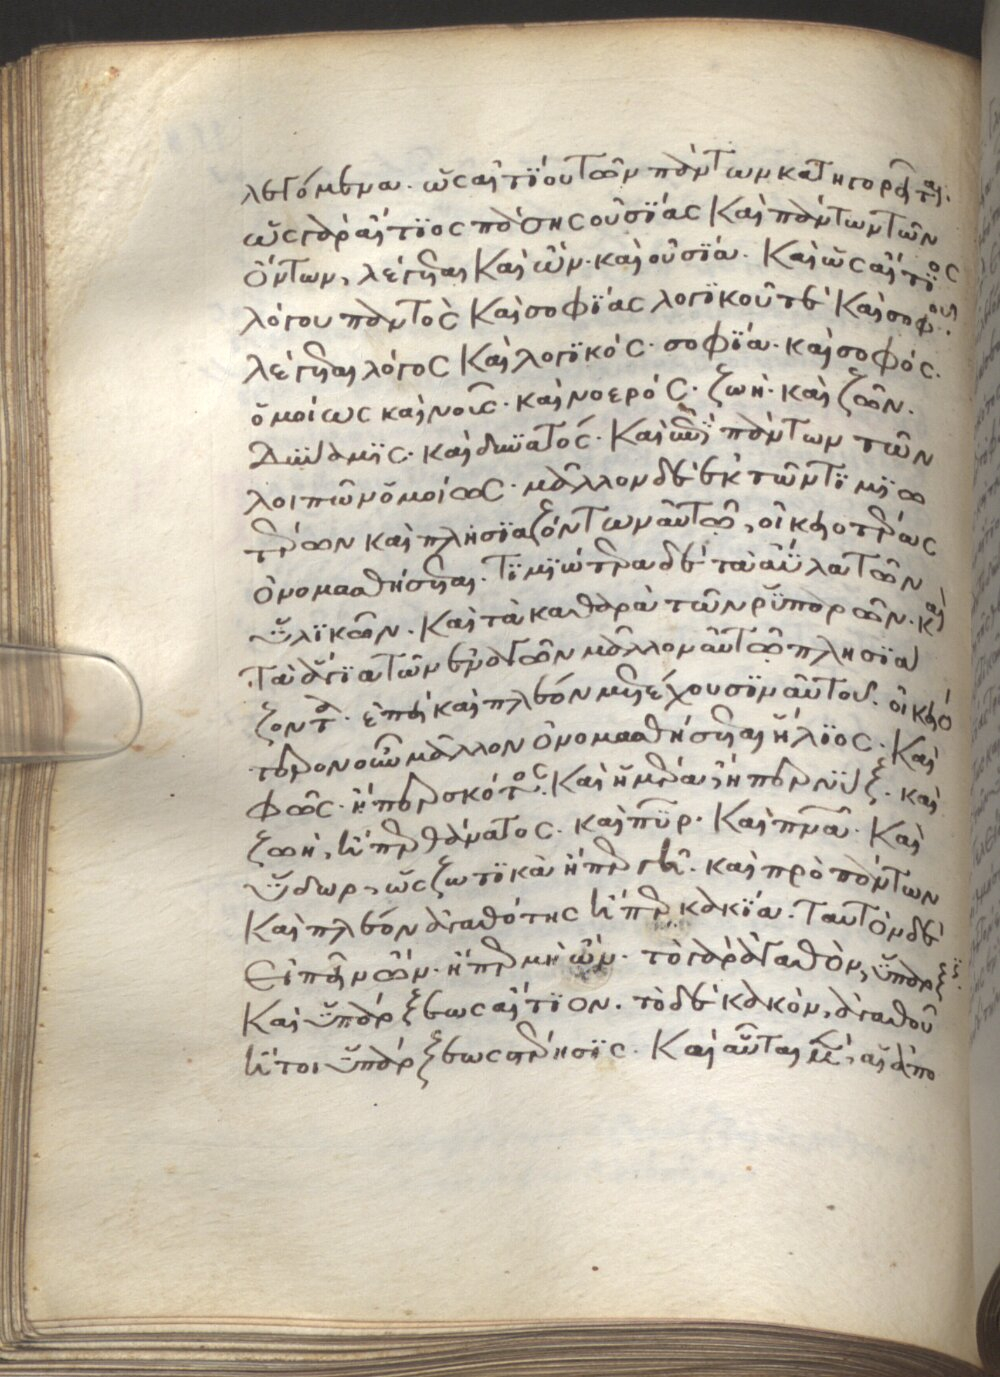 λεγόμενα. ὡς αἰτίου τῶν πάντων κατηγορεῖται.
ὡς γὰρ αἴτιος πάσης οὐσίας καὶ πάντων τῶν
ὄντων, λέγεται καὶ ὢν. καὶ οὐσία. καὶ ὡς αἴτιος
λόγου παντὸς καὶ σοφίας λογικοῦ τε καὶ σοφοῦ.
λέγεται λόγος καὶ λογικός. σοφία. καὶ σοφός.
ὁμοίως καὶ νοῦς. καὶ νοερός. ζωὴ. καὶ ζῶν.
δύναμις. καὶ δυνατός. καὶ ἐπὶ πάντων τῶν
λοιπῶν ὁμοίως. μᾶλλον δὲ ἐκ τῶν τιμιω
τέρων καὶ πλησιαζόντων αὐτῶ, οἰκειοτέρως
ὀνομασθήσεται. τιμιώτερα δὲ τὰ ἄϋλα τῶν
ὑλικῶν. καὶ τὰ καθαρὰ τῶν ῥυπαρῶν. καὶ
τὰ ἅγια τῶν ἐναγῶν μᾶλλον αὐτῶ πλησιά
ζοντα. ἐπεὶ καὶ πλέον μετέχουσιν αὐτοῦ. οἰκειό
τερον οὖν μᾶλλον ὀνομασθήσεται ἥλιος. καὶ
φῶς. ἤπερ σκότος. καὶ ἡμέρα, ἤπερ νύξ. καὶ
ζωὴ, ἤπερ θάνατος. καὶ πῦρ. καὶ πνα. καὶ
ὕδωρ, ὡς ζωτικὰ ἤπερ γῆ. καὶ πρὸ πάντων
καὶ πλέον ἀγαθότης ἤπερ κακία. ταυτὸν δὲ
εἰπεῖν ὢν. ἤπερ μὴ ὤν. τὸ γὰρ ἀγαθὸν, ὕπαρξις.
καὶ ὑπάρξεως αἴτιον. τὸ δὲ κακὸν, ἀγαθοῦ
ἤτοι ὑπάρξεως στέρησις. καὶ αὗται μὲν, αἱ ἀπο